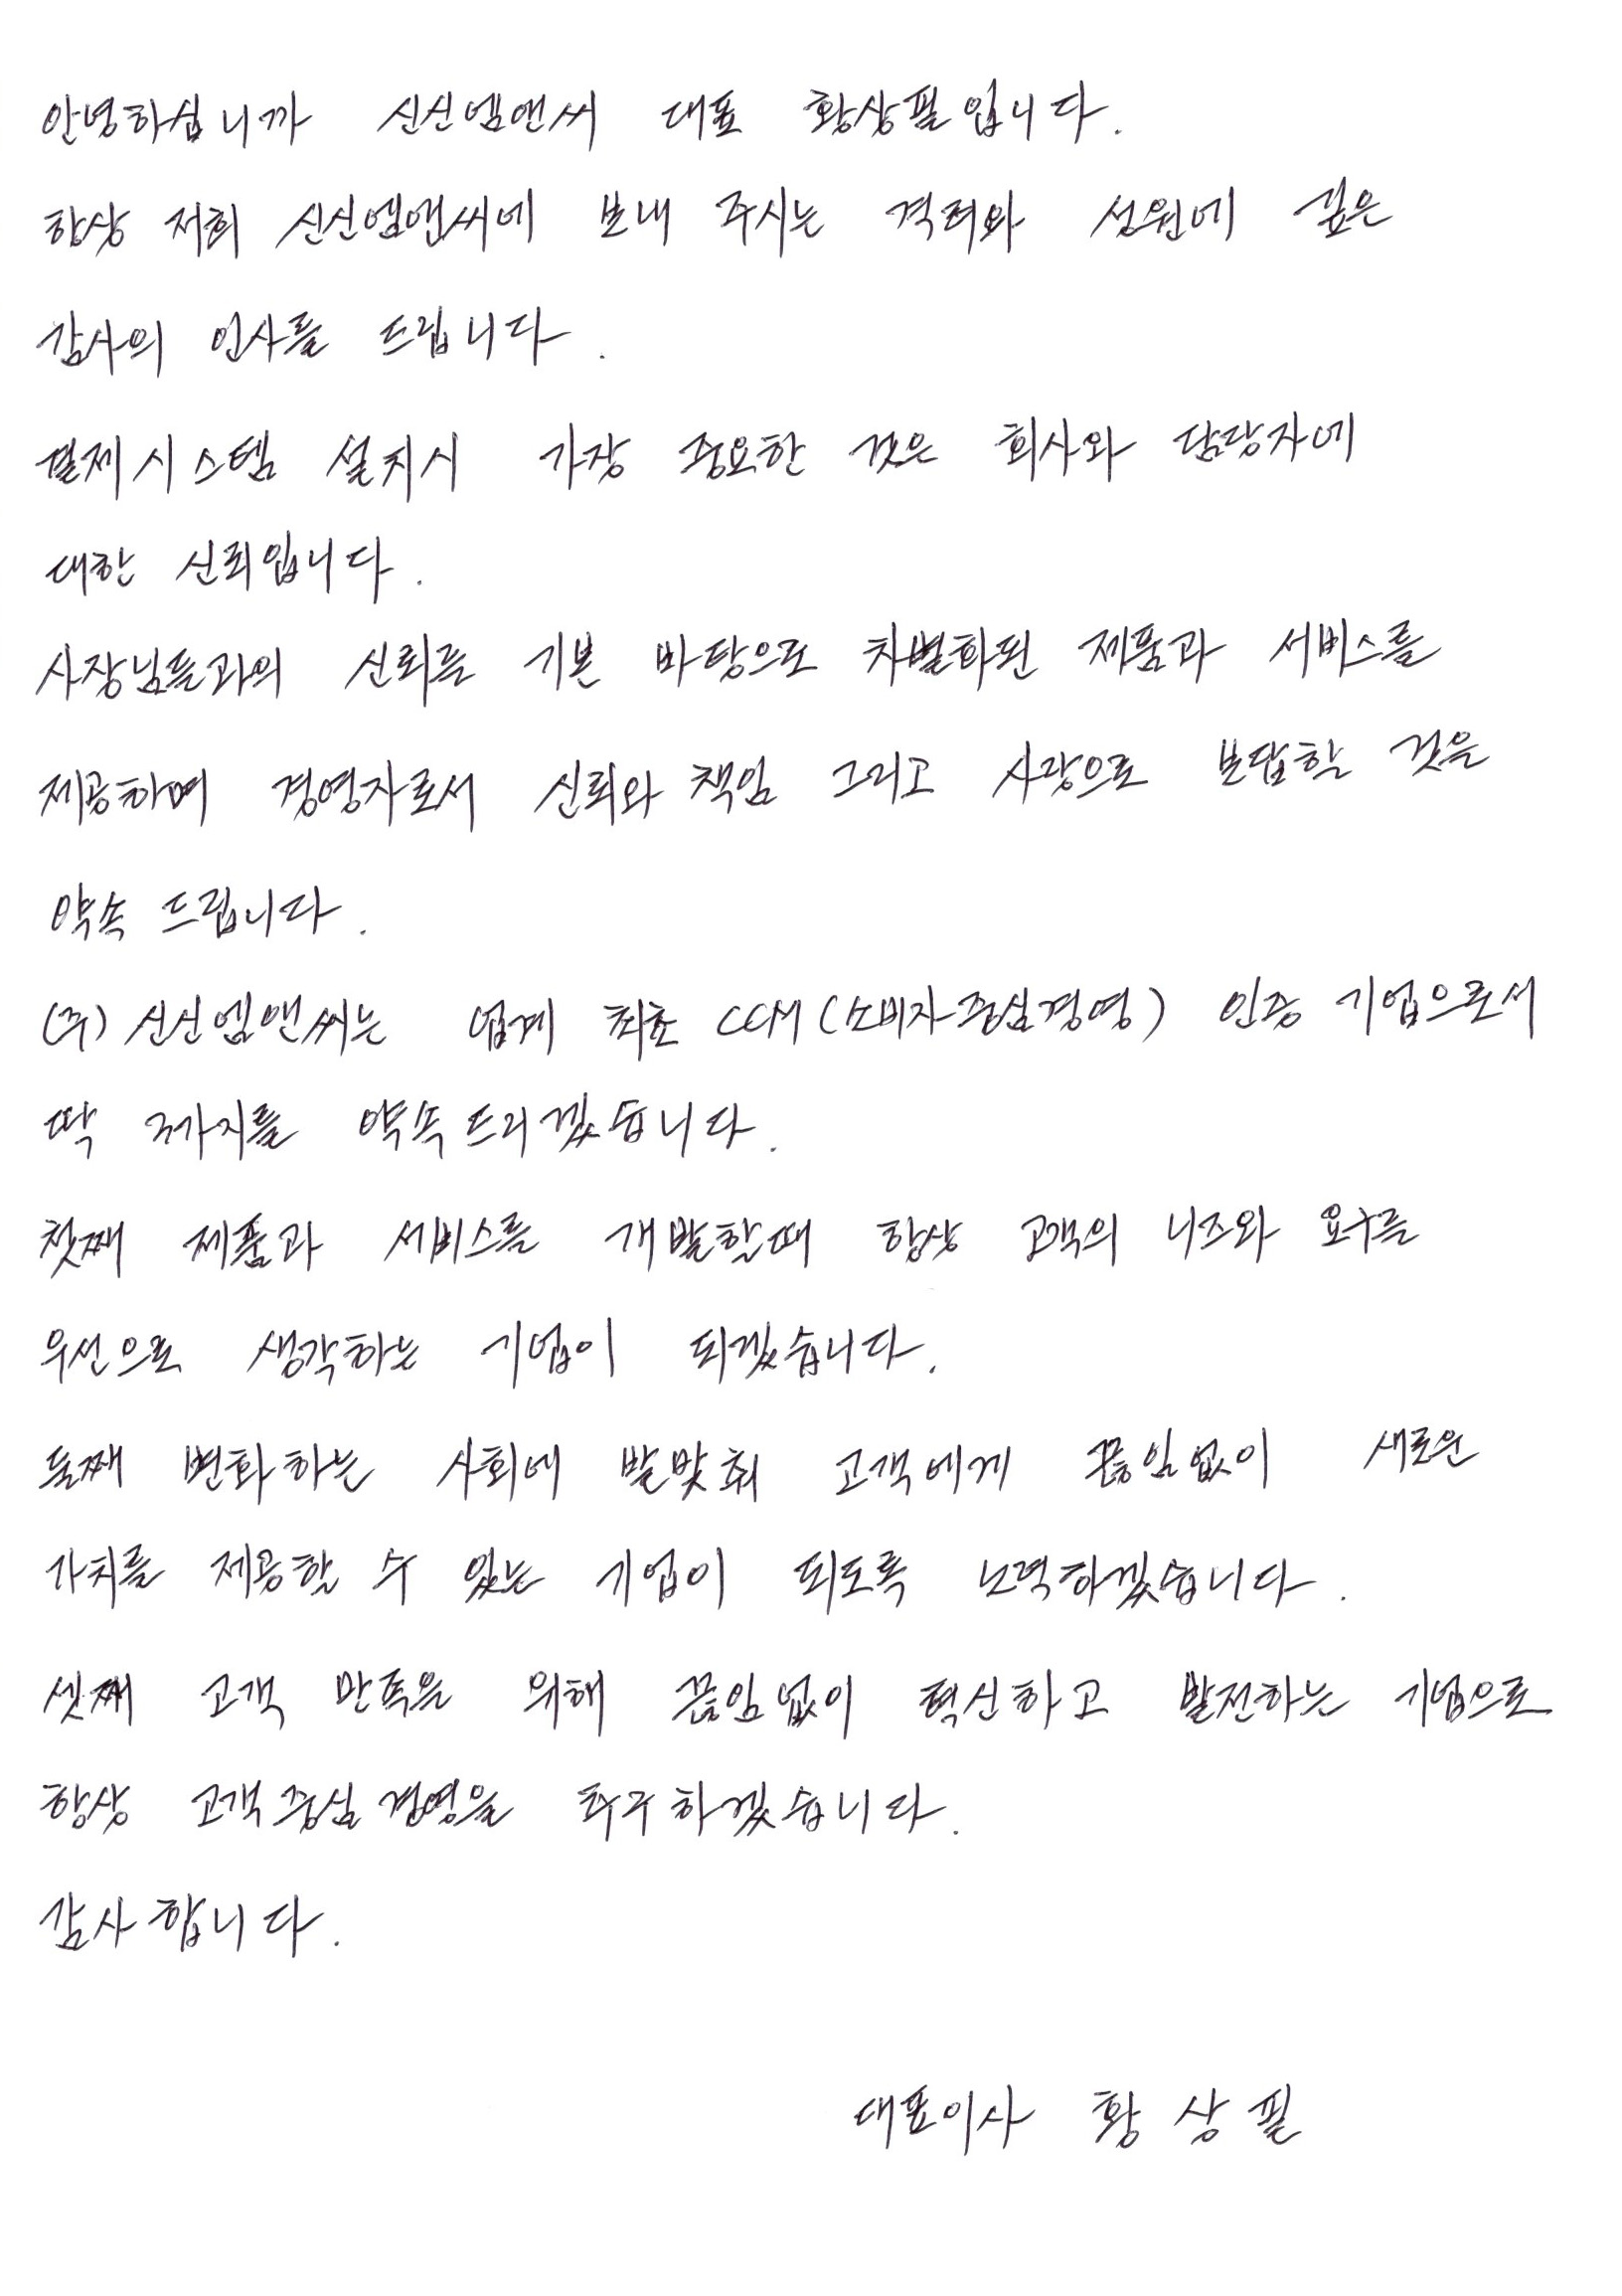 안녕하십니까 신신엠앤씨 대표 황상필입니다.
항상 저희 신신엠앤씨에 보내 주시는 격려와 성원에 깊은
감사의 인사를 드립니다.
결제시스템 설치시 가장 중요한 것은 회사와 담당자에
대한 신뢰입니다.
사장님들과의 신뢰를 기본 바탕으로 차별화된 제품과 서비스를
제공하며 경영자로서 신뢰와 책임 그리고 사랑으로 보답할 것을
약속 드립니다.
(주)신신엠앤씨는 업계 최초 CCM(소비자중심경영) 인증 기업으로서
딱 3가지를 약속드리겠습니다.
첫째 제품과 서비스를 개발할때 항상 고객의 니즈와 요구를
우선으로 생각하는 기업이 되겠습니다.
둘째 변화하는 사회에 발맞춰 고객에게 끊임없이 새로운
가치를 제공할 수 있는 기업이 되도록 노력하겠습니다.
셋째 고객 만족을 위해 끊임없이 혁신하고 발전하는 기업으로
항상 고객중심경영을 추구하겠습니다.
감사합니다.
대표이사 황상필